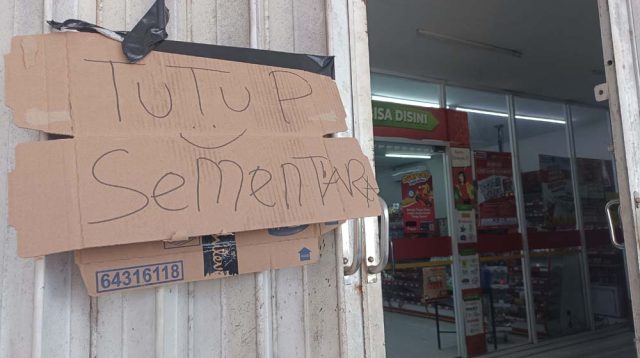 TUTUP
SemenTARA
64316118
BISA DISINI